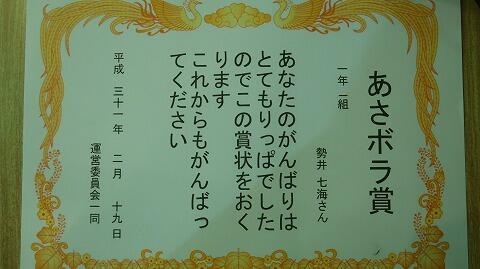 あさボラ賞
一年一組
勢井 七海さん
あなたのがんばりは
とてもりっぱでした
のでこの賞状をおく
ります
これからもがんばっ
てください
平成 三十一年 二月 十九日
運営委員会一同